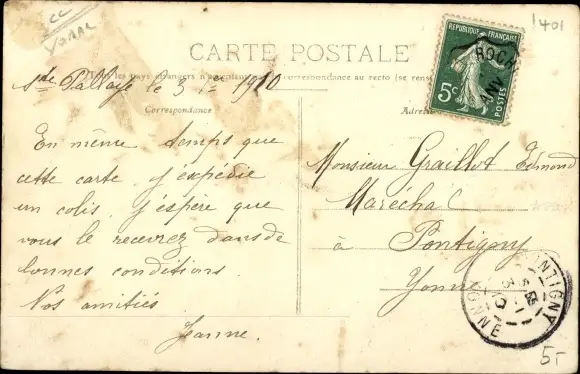 cc
YONNE
1401
CARTE POSTALE
RÉPUBLIQUE FRANÇAISE
5c
POSTES
Tous les pays étrangers n'acceptent pas la correspondance au recto (se rens
Ste Pallaye le 3 1er 1910
Correspondance
En même temps que
cette carte j'expédie
un colis j'espère que
vous le recevrez dans de
bonnes conditions.
Nos amitiés
Jeanne.
Adresse
Monsieur Graillot Edmond
Maréchal
à Pontigny
Yonne
PONTIGNY
YONNE
5-